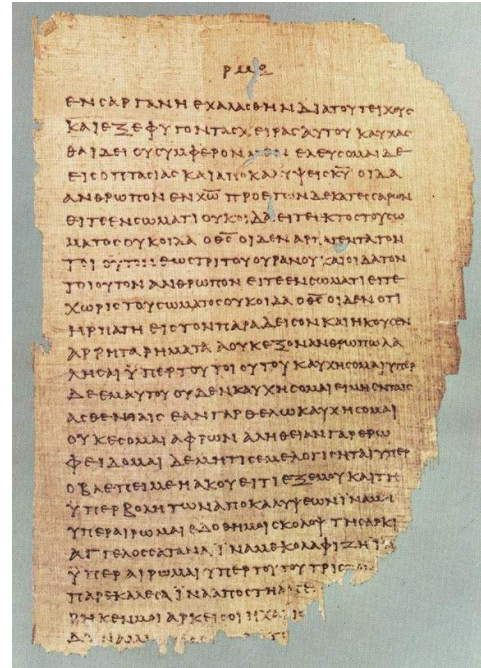 ρμθ
ΕΝ ϹΑΡΓΑΝΗ ΕΧΑΛΑϹΘΗΝ ΔΙΑ ΤΟΥ ΤΕΙΧΟΥϹ
ΚΑΙ ΕΞΕΦΥΓΟΝ ΤΑϹ ΧΕΙΡΑϹ ΑΥΤΟΥ ΚΑΥΧΑϹ
ΘΑΙ ΔΕΙ ΟΥ ϹΥΜΦΕΡΟΝ ΕΛΕΥϹΟΜΑΙ ΔΕ
ΕΙϹ ΟΠΤΑϹΙΑϹ ΚΑΙ ΑΠΟΚΑΛΥΨΕΙϹ Κ̅Υ̅ ΟΙΔΑ
ΑΝΘΡΩΠΟΝ ΕΝ Χ̅Ω̅ ΠΡΟ ΕΤΩΝ ΔΕΚΑΤΕϹϹΑΡΩΝ
ΕΙΤΕ ΕΝ ϹΩΜΑΤΙ ΟΥΚ ΟΙΔΑ ΕΙΤΕ ΕΚΤΟϹ ΤΟΥ ϹΩ
ΜΑΤΟϹ ΟΥΚ ΟΙΔΑ Ο Θ̅Ϲ̅ ΟΙΔΕΝ ΑΡΠΑΓΕΝΤΑ ΤΟΝ
ΤΟΙΟΥΤΟΝ ΕΩϹ ΤΡΙΤΟΥ ΟΥΡΑΝΟΥ ΚΑΙ ΟΙΔΑ ΤΟΝ
ΤΟΙΟΥΤΟΝ ΑΝΘΡΩΠΟΝ ΕΙΤΕ ΕΝ ϹΩΜΑΤΙ ΕΙΤΕ
ΧΩΡΙϹ ΤΟΥ ϹΩΜΑΤΟϹ ΟΥΚ ΟΙΔΑ Ο Θ̅Ϲ̅ ΟΙΔΕΝ ΟΤΙ
ΗΡΠΑΓΗ ΕΙϹ ΤΟΝ ΠΑΡΑΔΕΙϹΟΝ ΚΑΙ ΗΚΟΥϹΕΝ
ΑΡΡΗΤΑ ΡΗΜΑΤΑ Α ΟΥΚ ΕΞΟΝ ΑΝΘΡΩΠΩ ΛΑ
ΛΗϹΑΙ ΫΠΕΡ ΤΟΥ ΤΟΙΟΥΤΟΥ ΚΑΥΧΗϹΟΜΑΙ ΥΠΕΡ
ΔΕ ΕΜΑΥΤΟΥ ΟΥΔΕΝ ΚΑΥΧΗϹΟΜΑΙ ΕΙ ΜΗ ΕΝ ΤΑΙϹ
ΑϹΘΕΝΕΙΑΙϹ ΕΑΝ ΓΑΡ ΘΕΛΩ ΚΑΥΧΗϹΟΜΑΙ
ΟΥΚ ΕϹΟΜΑΙ ΑΦΡΩΝ ΑΛΗΘΕΙΑΝ ΓΑΡ ΕΡΩ
ΦΕΙΔΟΜΑΙ ΔΕ ΜΗ ΤΙϹ ΕΜΕ ΛΟΓΙϹΗΤΑΙ ΥΠΕΡ
Ο ΒΛΕΠΕΙ ΜΕ Η ΑΚΟΥΕΙ ΤΙ ΕΞ ΕΜΟΥ ΚΑΙ ΤΗ
ΫΠΕΡΒΟΛΗ ΤΩΝ ΑΠΟΚΑΛΥΨΕΩΝ ΪΝΑ ΜΗ
ΥΠΕΡΑΙΡΩΜΑΙ ΕΔΟΘΗ ΜΟΙ ϹΚΟΛΟΨ ΤΗ ϹΑΡΚΙ
ΑΓΓΕΛΟϹ ϹΑΤΑΝΑ ΪΝΑ ΜΕ ΚΟΛΑΦΙΖΗ ΪΝΑ
ΫΠΕΡΑΙΡΩΜΑΙ ΥΠΕΡ ΤΟΥΤΟΥ ΤΡΙϹ
ΠΑΡΕΚΑΛΕϹΑ ΪΝΑ ΑΠΟϹΤΗ
ΚΕΝ ΜΟΙ ΑΡΚΕΙ ϹΟΙ Η ΧΑΡΙϹ